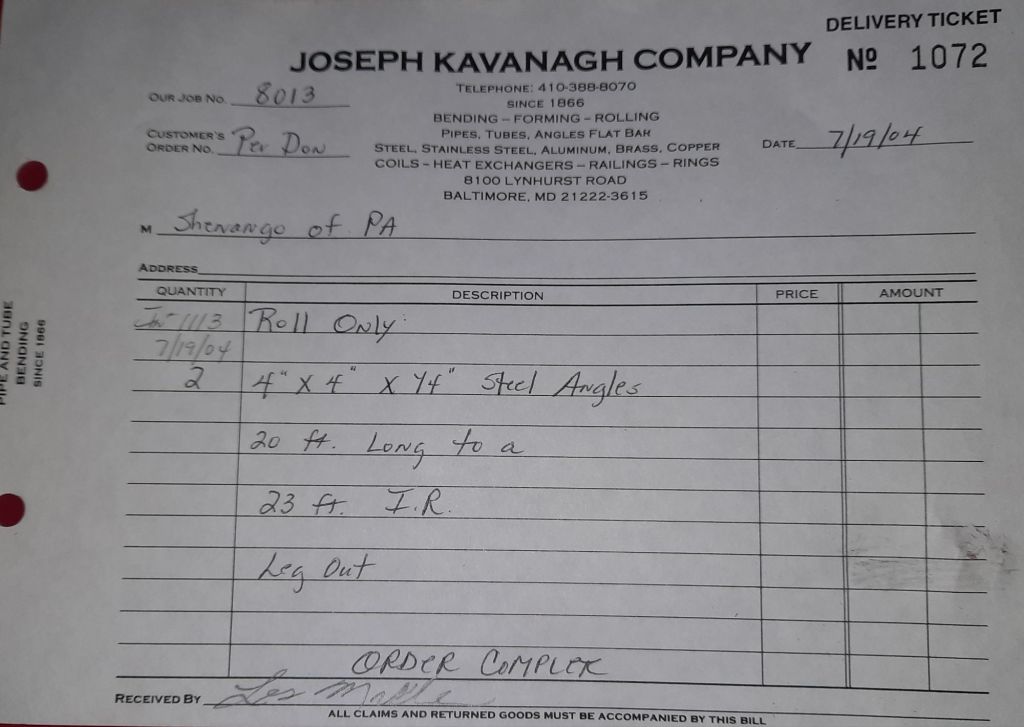 DELIVERY TICKET
JOSEPH KAVANAGH COMPANY
Nº 1072
TELEPHONE: 410-388-8070
SINCE 1866
BENDING – FORMING – ROLLING
PIPES, TUBES, ANGLES FLAT BAR
STEEL, STAINLESS STEEL, ALUMINUM, BRASS, COPPER
COILS – HEAT EXCHANGERS – RAILINGS – RINGS
8100 LYNHURST ROAD
BALTIMORE, MD 21222-3615
OUR JOB NO. 8013
CUSTOMER'S
ORDER NO. Per Don
DATE 7/19/04
M Shenango of PA
ADDRESS
QUANTITY DESCRIPTION PRICE AMOUNT
1113 Roll Only
7/19/04
2 4" X 4" X 1/4" Steel Angles
20 ft. Long to a
23 ft. I.R.
Leg Out
ORDER
RECEIVED BY Les
ALL CLAIMS AND RETURNED GOODS MUST BE ACCOMPANIED BY THIS BILL
PIPE AND TUBE
BENDING
SINCE 1866